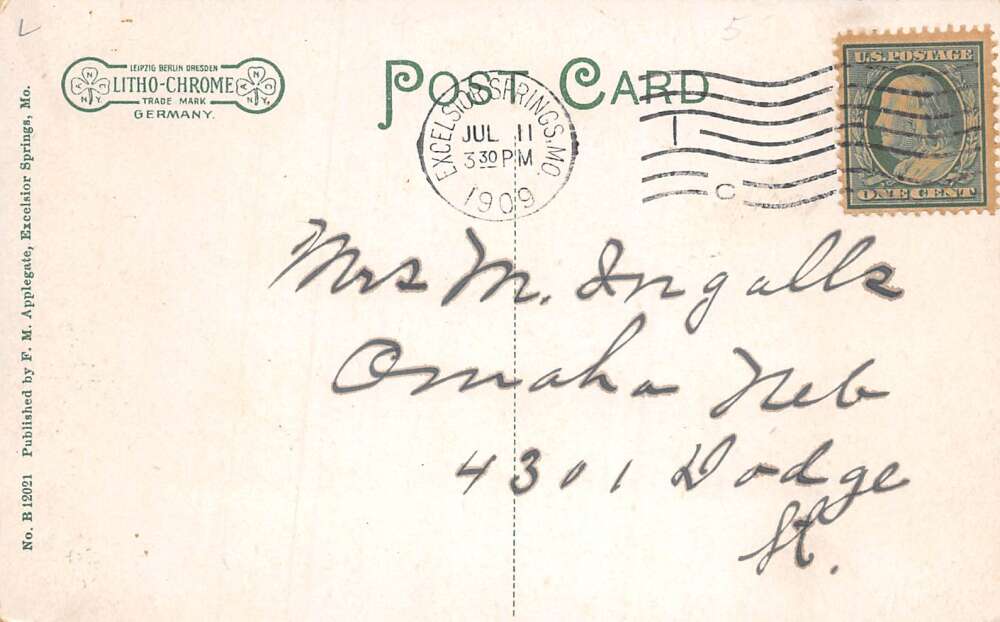 L
5
LEIPZIG BERLIN DRESDEN
LITHO-CHROME
TRADE MARK
GERMANY.
POST CARD
EXCELSIOR SPRINGS, MO.
JUL 11
3 30 PM
1909
1
C
U.S. POSTAGE
ONE CENT
Mrs M. Ingalls
Omaha Neb
4301 Dodge
St.
No. B 12021 Published by F. M. Applegate, Excelsior Springs, Mo.